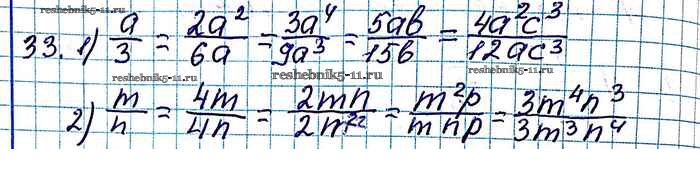 33. 1) a/3 = 2a²/6a = 3a⁴/9a³ = 5ab/15b = 4a²c³/12ac³
reshebnik5-11.ru
reshebnik5-11.ru
reshebnik5-11.ru
2) m/n = 4m/4n = 2mn/2n² = m²p/mnp = 3m⁴n³/3m³n⁴